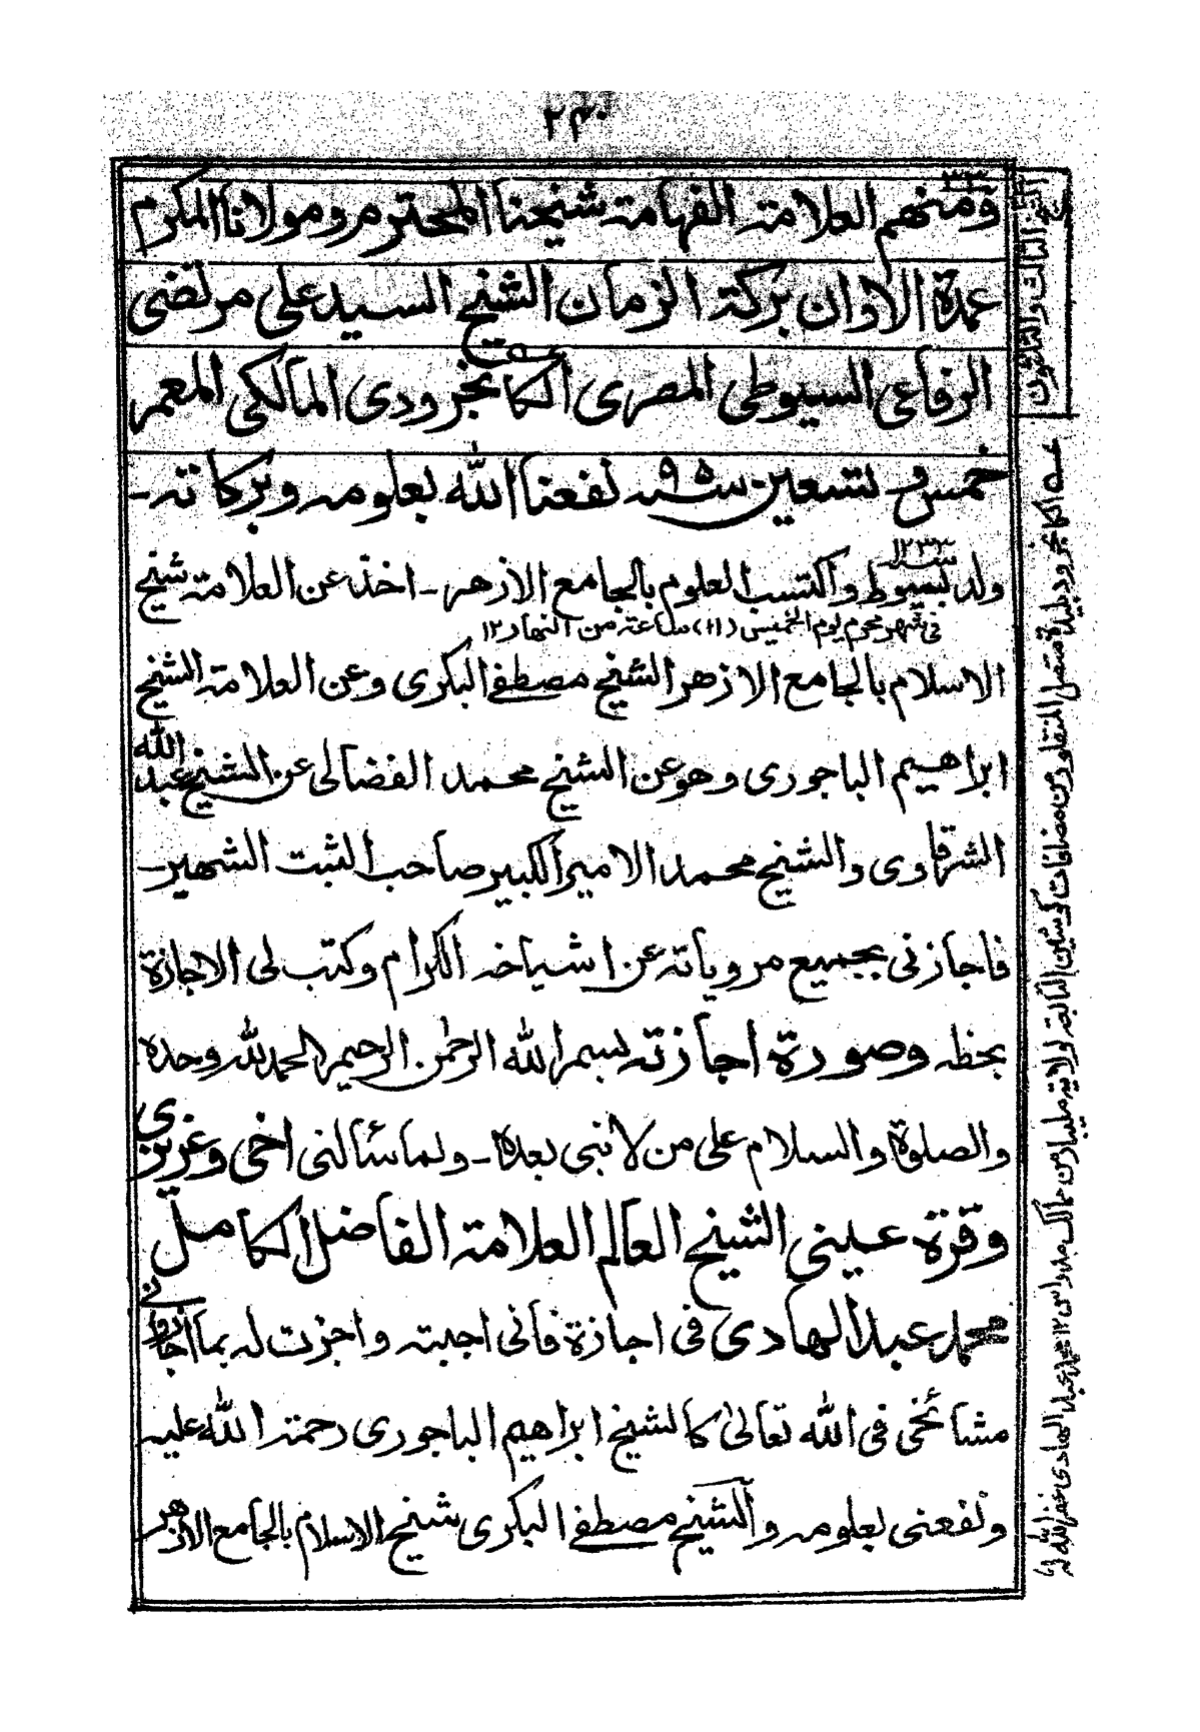 ٢٤٠
٣٣
ومنهم العلامة الفهامة شيخنا المحترم ومولانا المكرم
عمدة الاوان بركة الزمان الشيخ السيد على مرتضى
الرفاعى السيوطى المصرى الكانجرودى المالكى المعمر
خمس وتسعين سنة ٩٥ نفعنا الله بعلومه وبركاته -
ولد بسيوط واكتسب العلوم بالجامع الازهر - اخذ عن العلامة شيخ
فى شهر محرم يوم الخميس (١١) ساعة من النهار ١٢
الاسلام بالجامع الازهر الشيخ مصطفى البكرى وعن العلامة الشيخ
ابراهيم الباجورى وهو عن الشيخ محمد الفضالى عن الشيخ عبد الله
الشرقاوى والشيخ محمد الامير الكبير صاحب الثبت الشهير -
فاجازنى بجميع مروياته عن اشياخه الكرام وكتب لى الاجازة
بخطه وصورة اجازته بسم الله الرحمن الرحيم الحمد لله وحده
والصلوة والسلام على من لا نبى بعده - ولما سألنى اخى وعزيزى
وقرة عينى الشيخ العالم العلامة الفاضل الكامل
محمد عبد الهادى فى اجازة فانى اجبته واجزت له بما اجازنى
مشائخى فى الله تعالى كالشيخ ابراهيم الباجورى رحمة الله عليه
ونفعنى بعلومه والشيخ مصطفى البكرى شيخ الاسلام بالجامع الازهر
الثالث والثلثون
بليدة متصل من مضافات من ممالك مدراس ١٢ محمد عبد الهادى غفر الله له